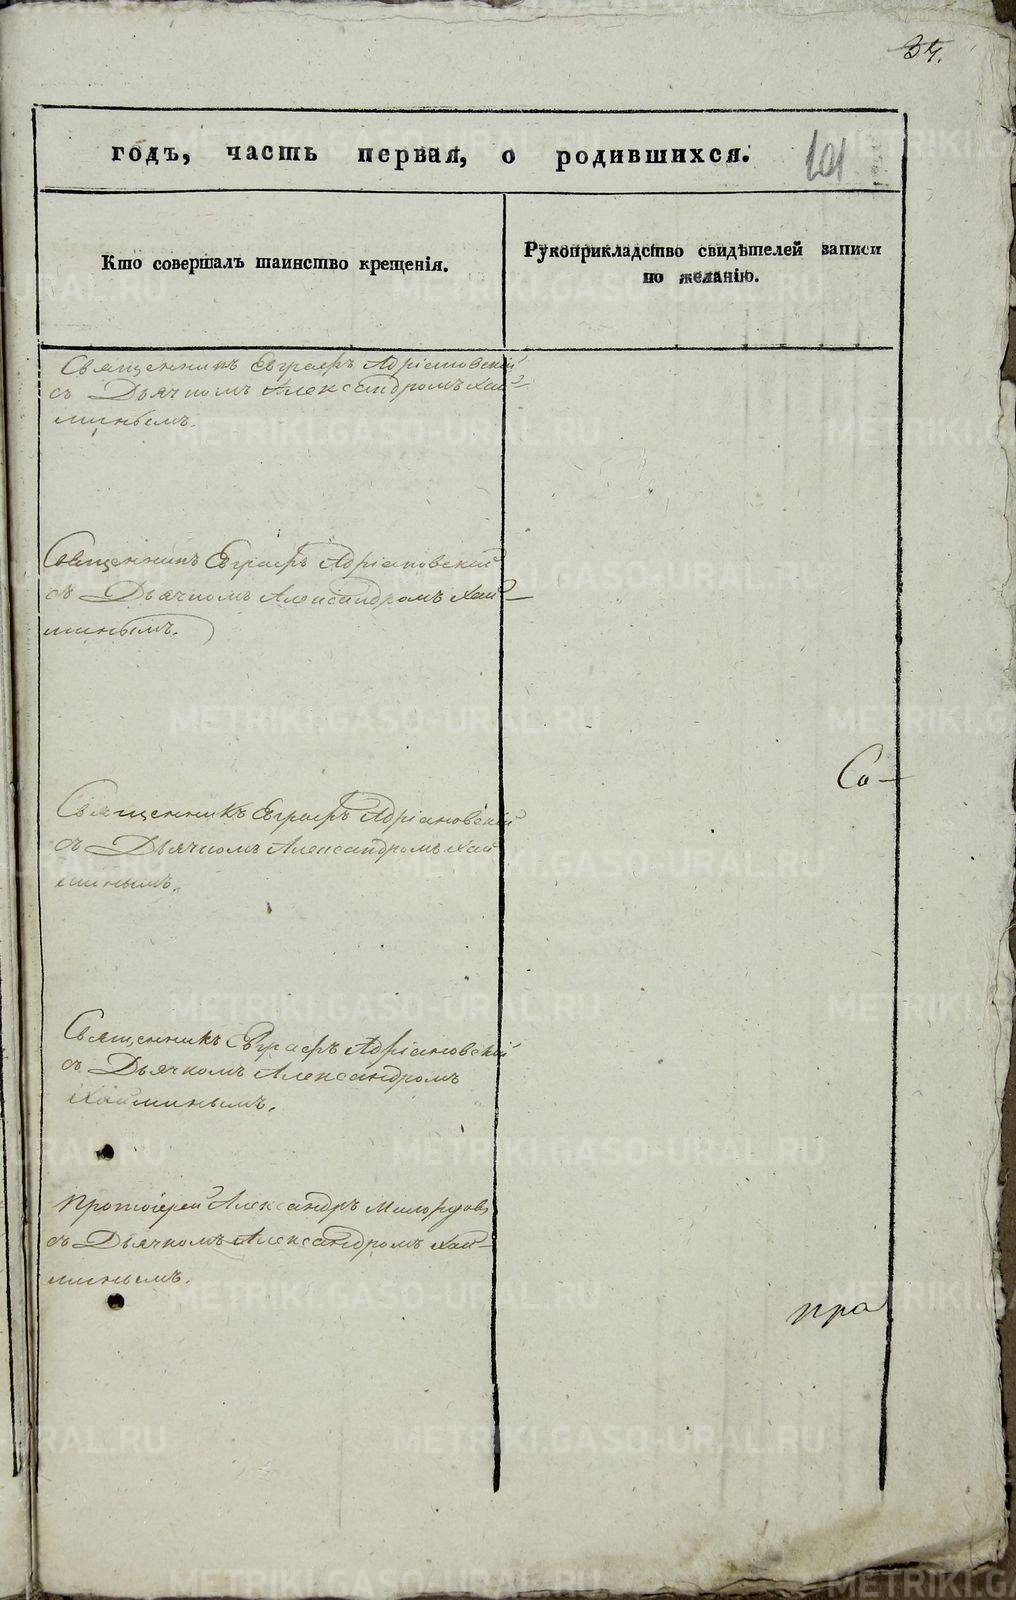 34.
годъ, часть первая, о родившихся.
101
Кто совершалъ таинство крещенія.
Рукоприкладство свидѣтелей записи
по желанію.
Священникъ Евграфъ Адріановскій
съ Дьячкомъ Александромъ Хай-
минымъ.
Священникъ Евграфъ Адріановскій
съ Дьячкомъ Александромъ Хай-
минымъ.
Со-
Священникъ Евграфъ Адріановскій
съ Дьячкомъ Александромъ Хай
минымъ.
Священникъ Евграфъ Адріановскій
съ Дьячкомъ Александромъ
Хайминымъ.
Протоіерей Александръ
съ Дьячкомъ Александромъ Хай-
минымъ.
пра
METRIKI.GASO-URAL.RU